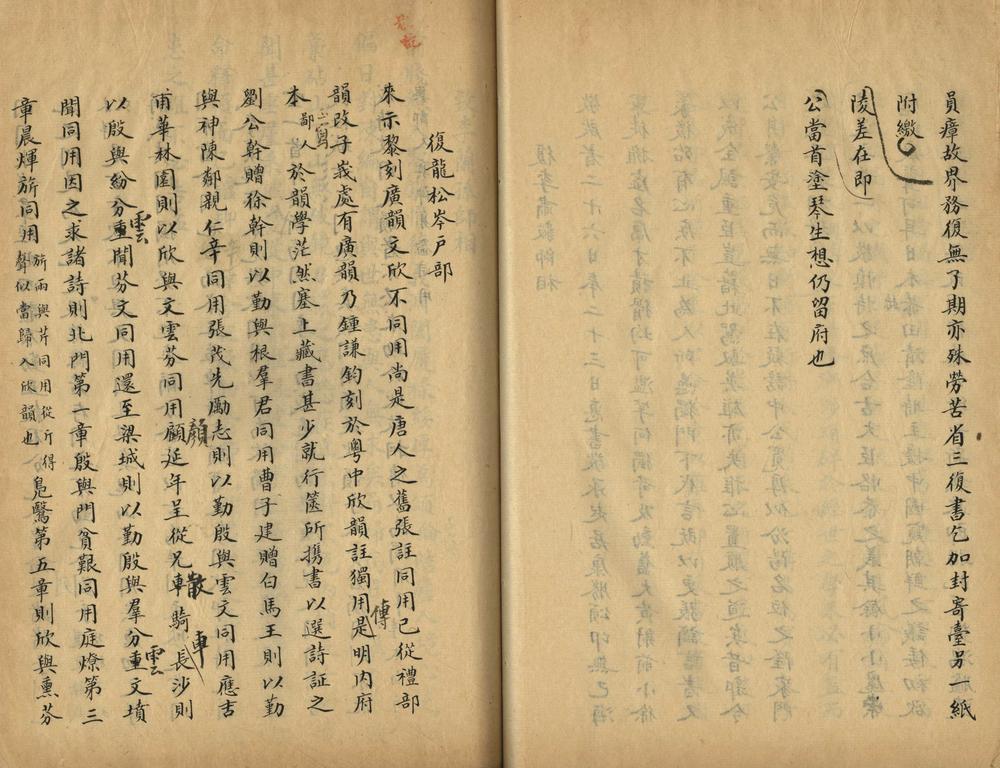 員瘴故界務復無了期亦殊勞苦省三復書乞加封寄臺另一紙
附繳
陵差在即
公當首塗琴生想仍留府也
復龍松岑戶部
來示黎刻廣韻文欣不同用尚是唐人之舊張註同用已從禮部
韻改子峩處有廣韻乃鍾謙鈞刻於粵中欣韻註獨用是明內府
傳
本鄙人於韻學茫然塞上藏書甚少就行篋所攜書以選詩証之
劉公幹贈徐幹則以勤與根羣君同用曹子建贈白馬王則以勤
與神陳鄰親仁辛同用張茂先勵志則以勤殷與雲文同用應吉
甫華林園則以欣與文雲芬同用顧延年呈從兄車騎長沙則
顏
散
車
以殷與紛分重聞芬文同用還至梁城則以勤殷與羣分重文墳
雲
雲
聞同用因之求諸詩則北門第一章殷與門貧艱同用庭燎第三
章晨煇旂同用
旂兩與芹同用從斤得
聲似當歸入欣韻也
鳧鷖第五章則欣與熏芬